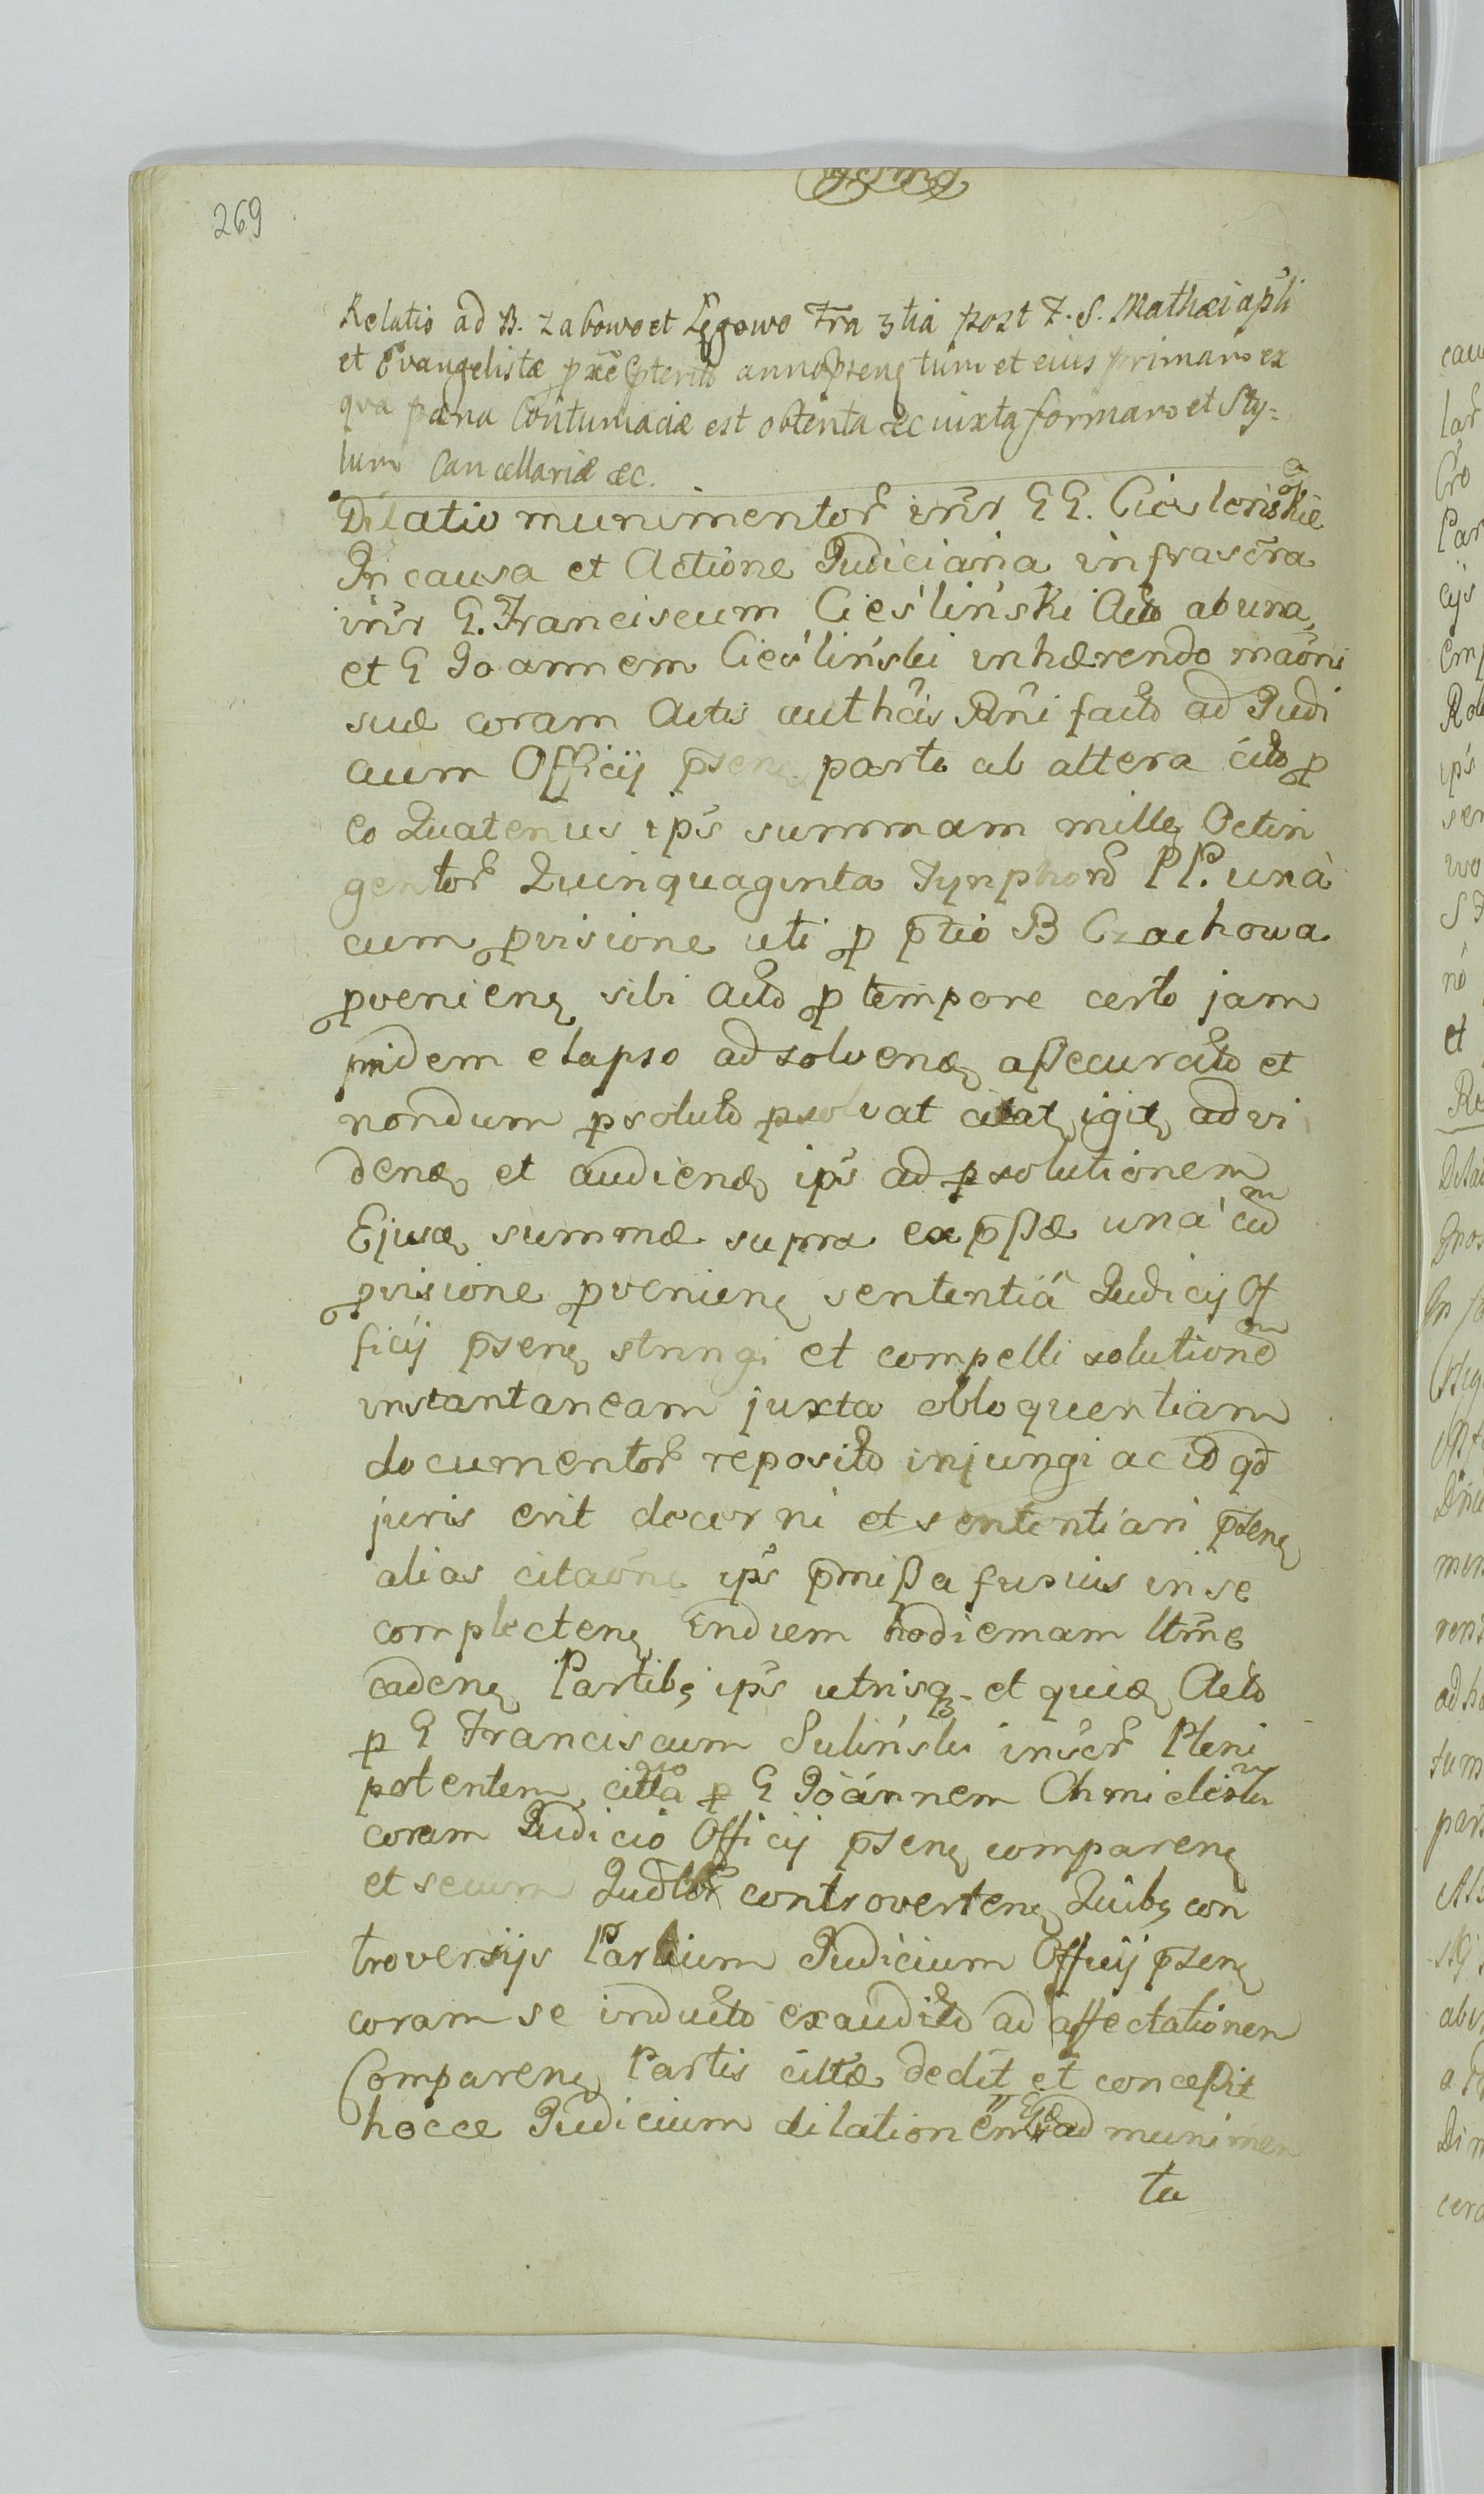 269
Relatio ad B. Zabowo et Łęgowo Fra 3tia post F. S. Mathæi apli
et Evangelistæ pxe pterito anno psenę tum et eius primam ex
qva pæna Contumaciæ est obtenta &c iuxta formam et Sty=
lum Cancellariæ &c.
Dilatio munimentor intr GG. Cieslinskie
In causa et Actione Judiciaria infrascra
intr G. Franciscum Cieśliński Acto ab una
et G Joannem Cieśliński inhærendo maoni
suæ coram Actis authcis Rni facto ad Judi
cium Officij psenę parte ab altera cito p
eo Quatenus ips summam mille Octin
gentor Quinquaginta Tynphor PP. unà
cum pvisione uti p ptio B Czachowa
pvenienę sibi Acto p tempore certo jam
pridem elapso adsolvenę assecurato et
nondum psoluto psolvat citat igit ad vi
denę et audienę ips ad psolutionem
Ejusę summæ supra exppssæ unà cum
pvisione pvenienę sententiâ Judicij Of
ficij psenę stringi et compelli solutionem
instantaneam juxta obloquentiam
documentor reposito injungi ac id qd
juris erit decerni et sententiari psenę
alias citaone ips pmissa fusius in se
complectenę In diem hodiernam ltme
cadenę Partibę ips utrisq et quię Acto
p G Franciscum Suliński inscr Pleni
potentem, citta p G Joánnem Chmieleński
coram Judicio Officij psenę comparenę
et secum Judlr controvertenę Quibę con
troversijs Partium Judicium Officij psenę
coram se inducto exaudito ad affectationem
Comparenę Partis cittæ dedit et concessit
hocce Judicium dilationem ad munimen
ta